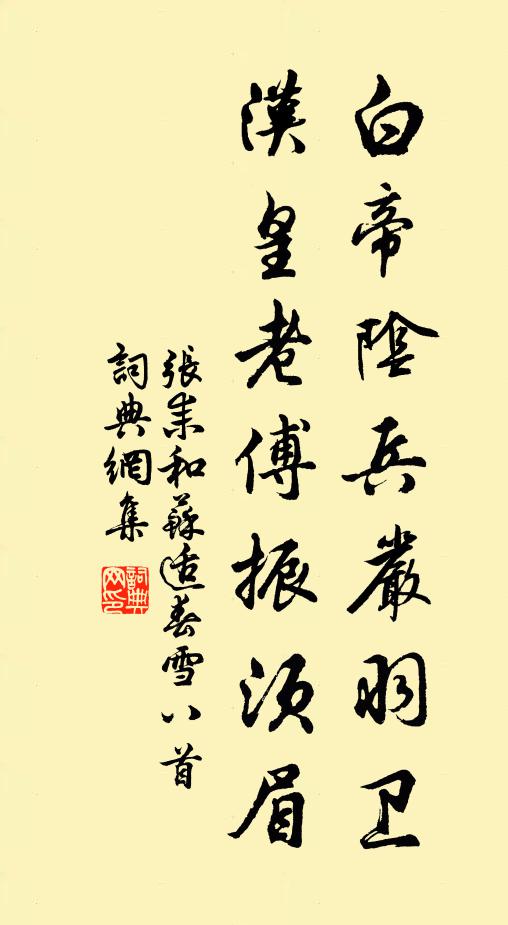 白帝陰兵嚴羽卫
漢皇老傅振须眉
張耒和蘇适春雪八首
詞典網集
詞典網印